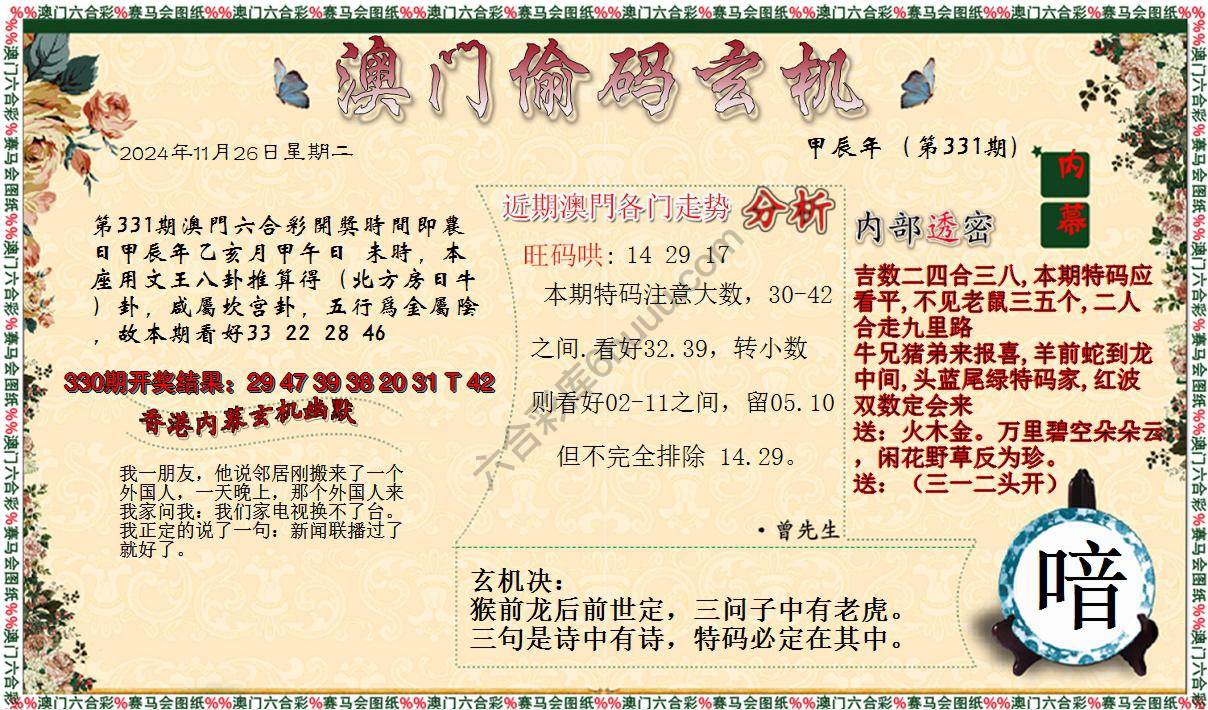 %%澳门六合彩%赛马会图纸%%澳门六合彩%赛马会图纸%%澳门六合彩%赛马会图纸%%澳门六合彩%赛马会图纸%%澳门六合彩%赛马会图纸%%澳门六合彩%赛马会图纸%%
澳门偷码玄机
2024年11月26日星期二
甲辰年（第331期）
内幕
第331期澳門六合彩開獎時間即農
日甲辰年乙亥月甲午日 未時，本
座用文王八卦推算得（北方房日牛
）卦，咸屬坎宫卦，五行爲金屬陰
，故本期看好33 22 28 46
330期开奖结果：29 47 39 38 20 31 T 42
香港内幕玄机幽默
我一朋友，他说邻居刚搬来了一个
外国人，一天晚上，那个外国人来
我家问我：我们家电视换不了台。
我正定的说了一句：新闻联播过了
就好了。
近期澳門各门走势 分析
旺码哄: 14 29 17
本期特码注意大数，30-42
之间.看好32.39，转小数
则看好02-11之间，留05.10
但不完全排除 14.29。
·曾先生
内部透密
吉数二四合三八,本期特码应
看平,不见老鼠三五个,二人
合走九里路
牛兄猪弟来报喜,羊前蛇到龙
中间,头蓝尾绿特码家,红波
双数定会来
送：火木金。万里碧空朵朵云
，闲花野草反为珍。
送：（三一二头开）
玄机决：
猴前龙后前世定，三问子中有老虎。
三句是诗中有诗，特码必定在其中。
喑